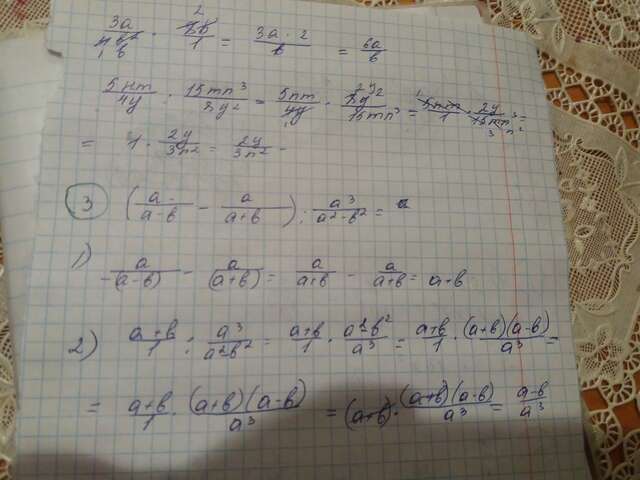 3a/4b² · 8b/1 = 3a · 2/b = 6a/b
5nm/4y : 15mn³/8y² = 5nm/4y · 8y²/15mn³ = 5nm/1 · 2y/15mn³ =
= 1 · 2y/3n² = 2y/3n²
3 (a/a-b - a/a+b) : a³/a²-b² =
1) a/-(a-b) - a/(a+b) = a/a+b - a/a+b = a+b
2) a+b/1 : a³/a²-b² = a+b/1 · a²-b²/a³ = a+b/1 · (a+b)(a-b)/a³ =
= a+b/1 · (a+b)(a-b)/a³ = (a+b) · (a+b)(a-b)/a³ = a-b/a³